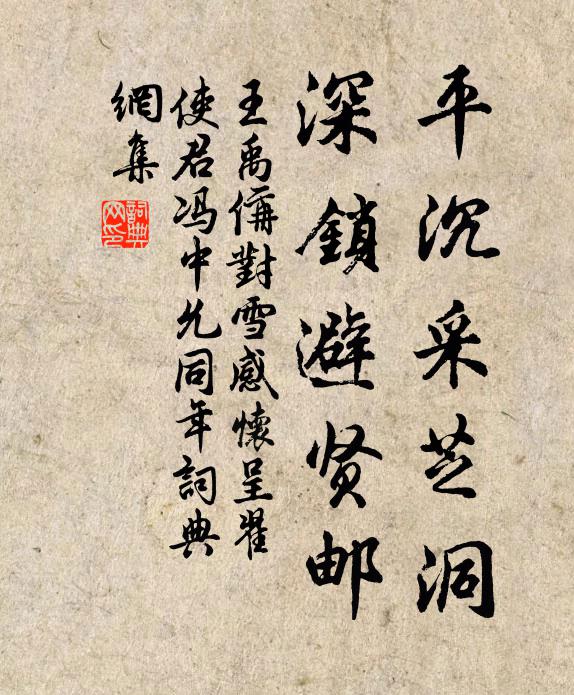 平沉采芝洞
深鎖避贤邮
王禹偁對雪感懷呈翟
使君冯中允同年詞典
網集
詞典
网印